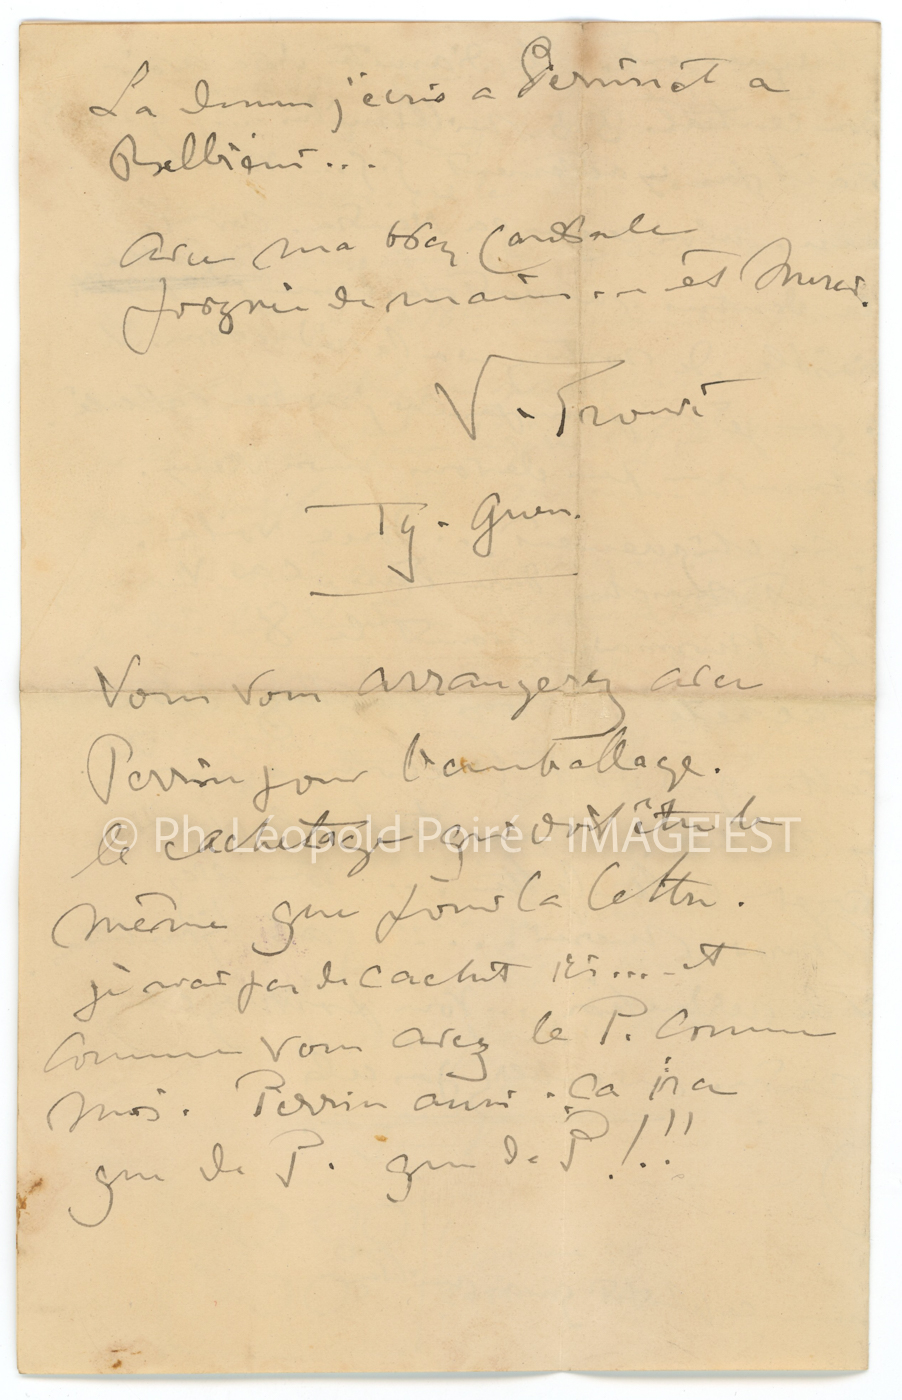 La j'écris a a
Avec ma très Cordiale
poignée de main... et Merci.
V. Prouvé
Ty. Gwen.
Vous vous arrangerez avec
Perrin pour l'emballage.
le cachetage qui doit être le
même que pour la lettre.
je n'ai pas de cachet ici... et
Comme vous avez le P. comme
moi. Perrin aussi. ça ira
que de P. que de P!!!
© Ph. Léopold Poiré - IMAGE'EST